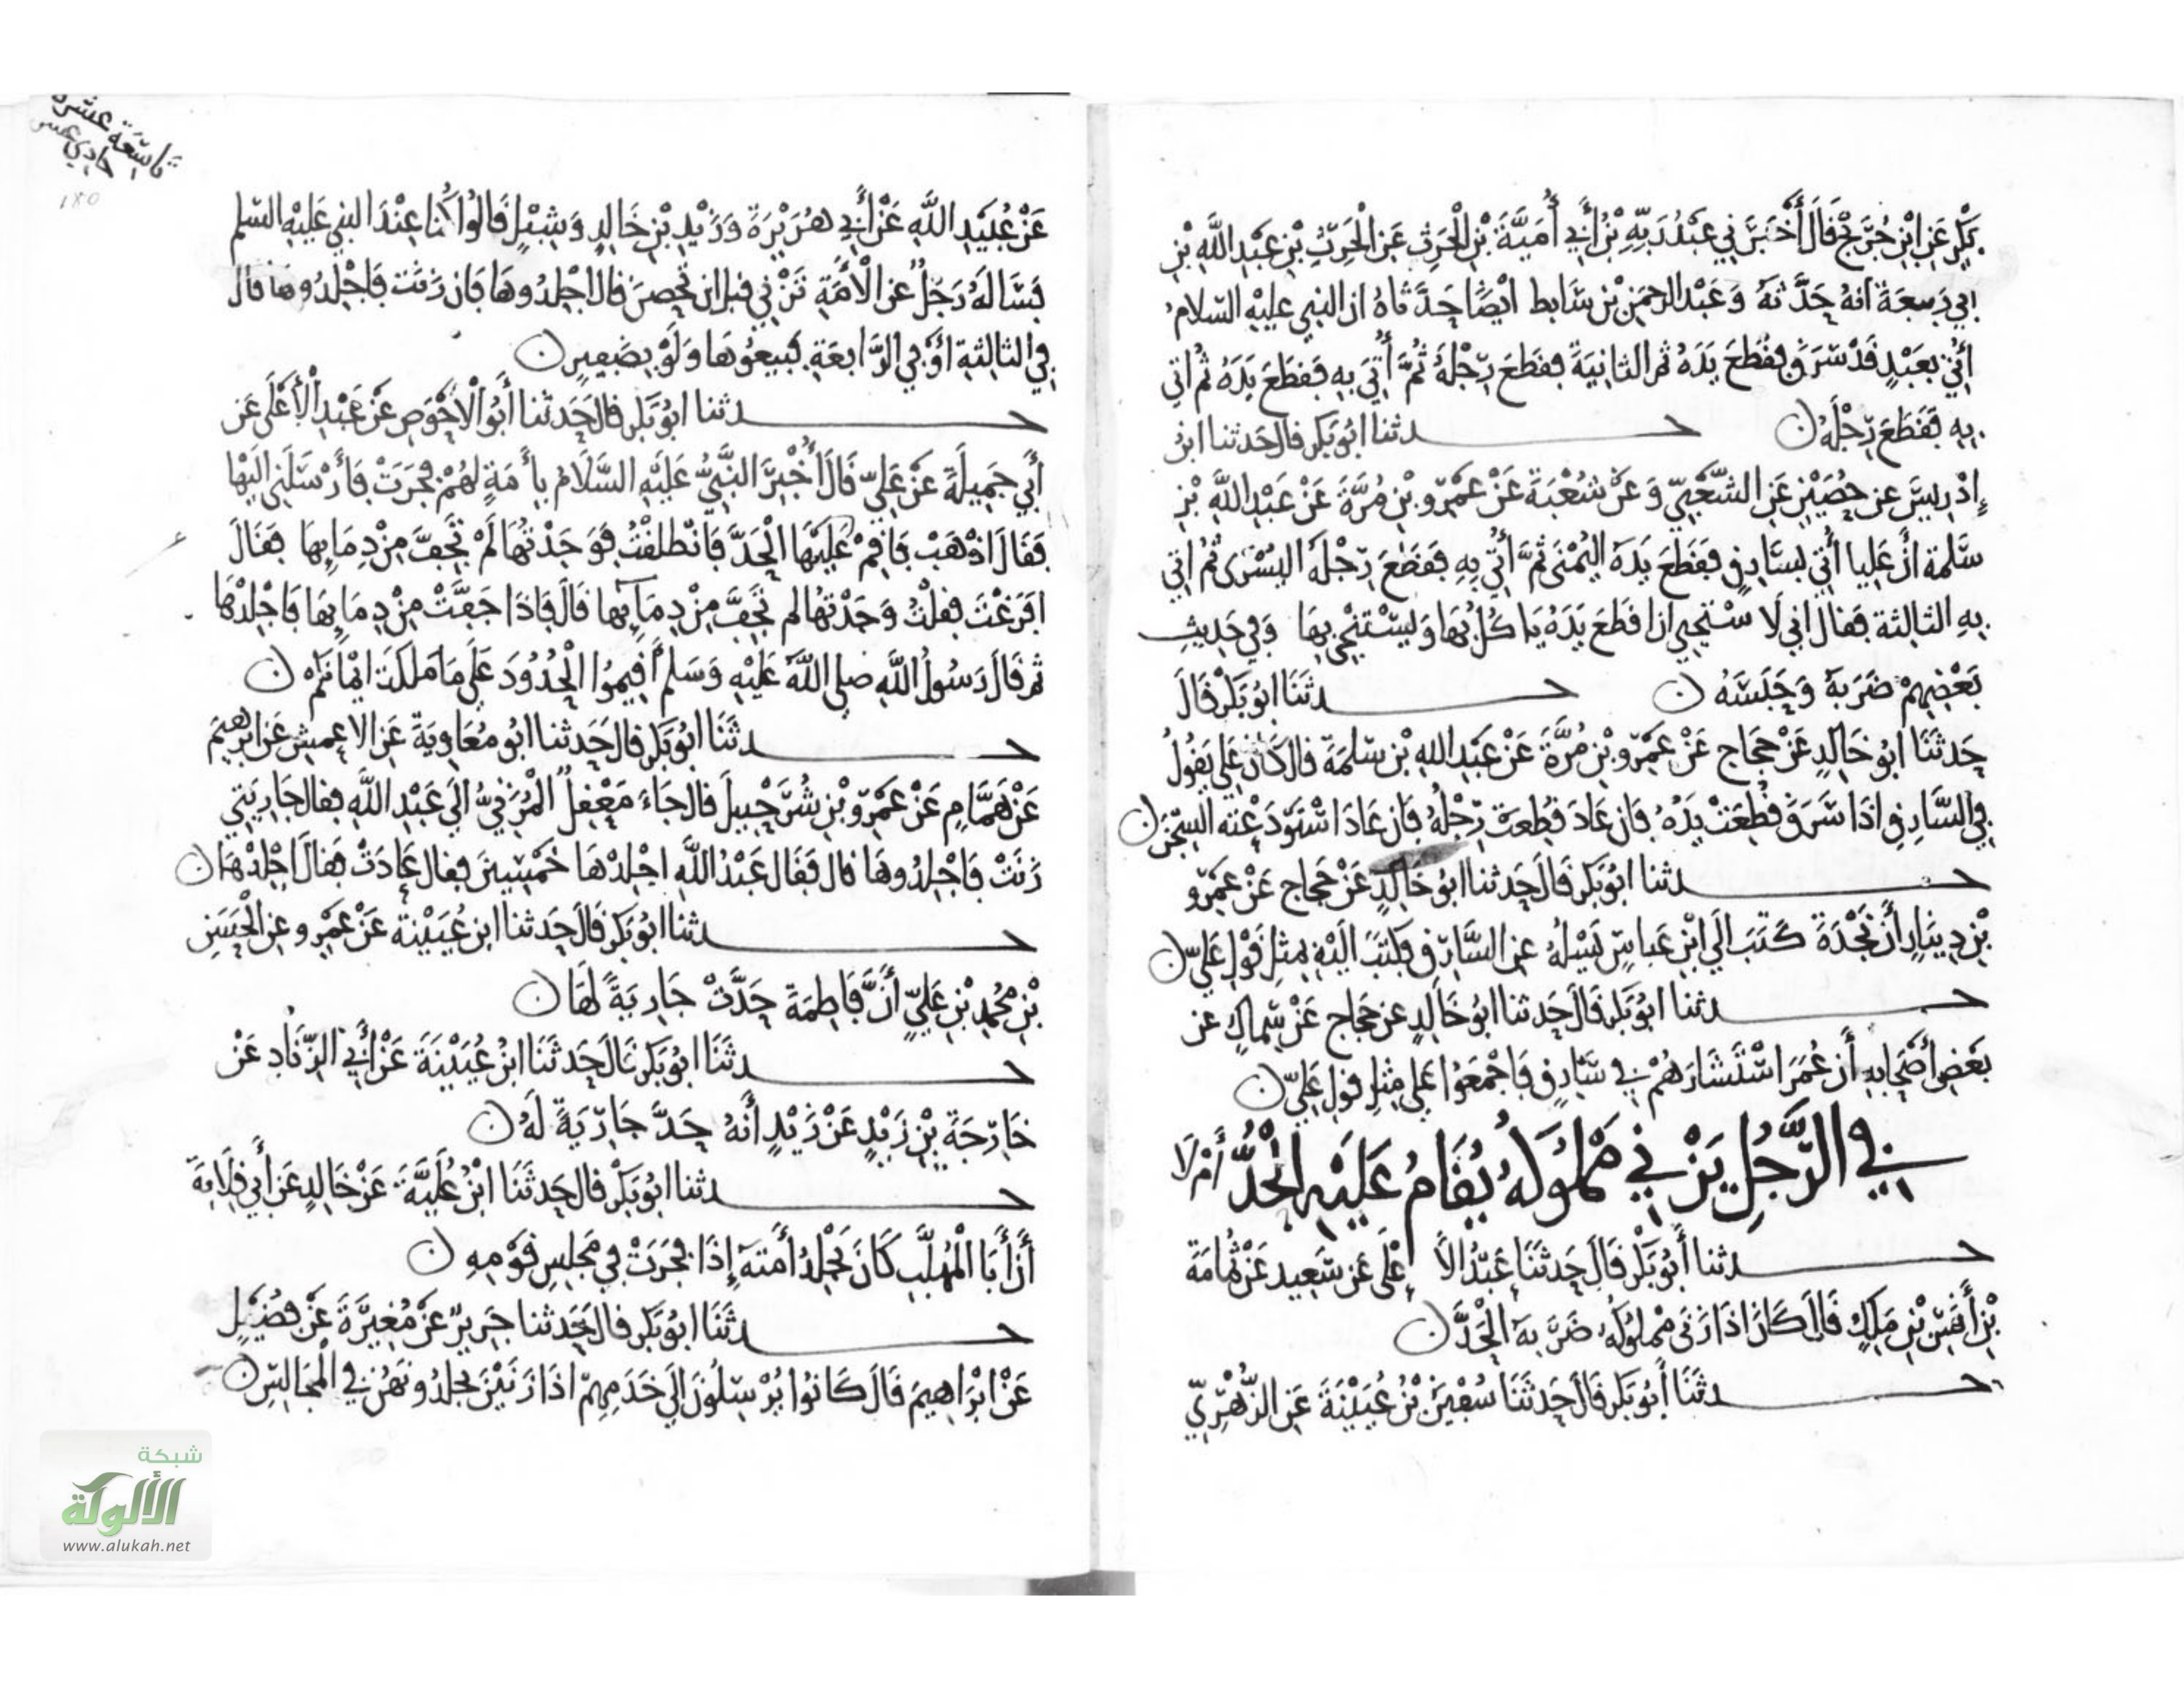 بكر عن ابن جريج قال أخبرني عبد ربه بن أبي أمية بن الحرث عن الحرث بن عبد الله بن
ابي ربيعة انه حدثه وعبد الرحمن بن سابط ايضا حدثاه ان النبي عليه السلام
اتي بعبد قد سرق فقطع يده ثم الثانية فقطع رجله ثم أتي به فقطع يده ثم اتي
به فقطع رجله ن حدثنا ابو بكر قال حدثنا ابن
إدريس عن حصين عن الشعبي وعن شعبة عن عمرو بن مرة عن عبد الله بن
سلمة أن عليا أتي بسارق فقطع يده اليمنى ثم أتي به فقطع رجله اليسرى ثم اتي
به الثالثة فقال اني لا ستحيي ان اقطع يده يا كل بها وليستنجي بها وفي حديث
بعضهم ضربه وحبسه ن حدثنا ابو بكر قال
حدثنا ابو خالد عن حجاج عن عمرو بن مرة عن عبد الله بن سلمة قال كان علي يقول
في السارق اذا سرق قطعت يده فان عاد قطعت رجله فان عاد استودعته السجن ن
حدثنا ابو بكر قال حدثنا ابو خالد عن حجاج عن عمرو
بن دينار أن نجدة كتب الي ابن عباس يسله عن السارق فكتب اليه بمثل قول علي ن
حدثنا ابو بكر قال حدثنا ابو خالد عن حجاج عن سماك عن
بعض أصحابه أن عمر استشارهم في سارق فاجمعوا على مثل قول علي ن
في الرجل يزني مملوكه يقام عليه الحد أم لا
حدثنا أبو بكر قال حدثنا عبد الاعلى عن سعيد عن ثمامة
بن أنس بن ملك قال كان اذا زنى مملوكه ضربه الحد ن
حدثنا أبو بكر قال حدثنا سفين بن عيينة عن الزهري
تاسعة عشرة
حادي عشر
١٨٥
عن عبيد الله عن أبي هريرة وزيد بن خالد وشبل قالوا كنا عند النبي عليه السلم
فساله رجل عن الأمة تزني قبل ان تحصن قال اجلدوها فان زنت فاجلدوها قال
في الثالثة او في الرابعة فبيعوها ولو بضفير ن
حدثنا ابو بكر قال حدثنا أبو الأحوص عن عبد الأعلى عن
أبي جميلة عن علي قال أخبر النبي عليه السلام بأمة لهم فجرت فأرسلني اليها
فقال اذهب فاقم عليها الحد فانطلقت فوجدتها لم تجف من دمايها فقال
افرغت فقلت وجدتها لم تجف من دمايها قال فاذا جفت من دمايها فاجلدها
ثم قال رسول الله صلى الله عليه وسلم أقيموا الحدود على ما ملكت ايمانكم ن
حدثنا ابو بكر قال حدثنا ابو معاوية عن الاعمش عن ابرهيم
عن همام عن عمرو بن شرحبيل قال جاء معقل المزني الي عبد الله فقال جاريتي
زنت فاجلدوها قال فقال عبد الله اجلدها خمسين فقال عادت فقال اجلدها ن
حدثنا ابو بكر قال حدثنا ابن عيينة عن عمرو عن الحسن
بن محمد بن علي أن فاطمة حدت جارية لها ن
حدثنا ابو بكر قال حدثنا ابن عيينة عن أبي الزناد عن
خارجة بن زيد عن زيد أنه حد جارية له ن
حدثنا ابو بكر قال حدثنا ابن علية عن خالد عن أبي قلابة
أن أبا المهلب كان يجلد أمته إذا فجرت في مجلس قومه ن
حدثنا ابو بكر قال حدثنا جرير عن مغيرة عن فضيل
عن ابراهيم قال كانوا يرسلون الي خدمهم اذا زنين يجلدونهن في المجالس ن
شبكة
الألوكة
www.alukah.net